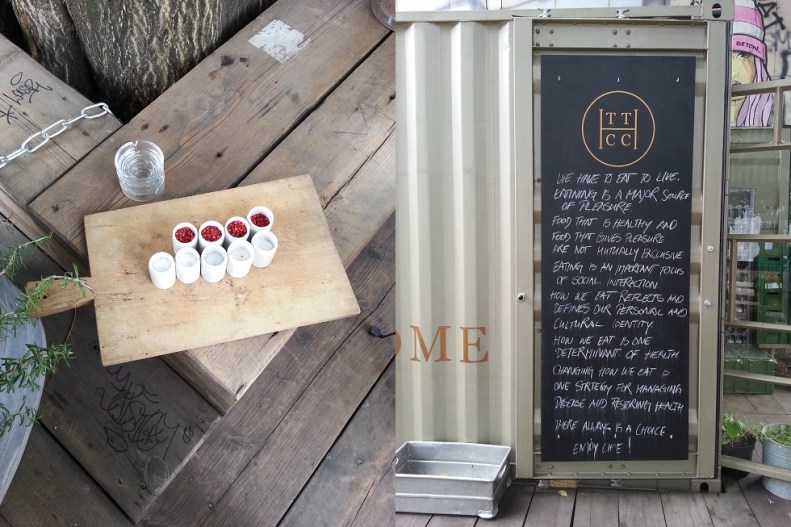 BETON.
TT
H
CC
WE HAVE TO EAT TO LIVE.
EATINING IS A MAJOR SOURCE
OF PLEASURE
FOOD THAT IS HEALTHY AND
FOOD THAT GIVES PLEASURE
ARE NOT MUTUALLY EXCLUSIVE
EATING IS AN IMPORTANT FOCUS
OF SOCIAL INTERACTION
HOW WE EAT REFLECTS AND
DEFINES OUR PERSONAL AND
CULTURAL IDENTITY
HOW WE EAT IS ONE
DETERMINANT OF HEALTH
CHANGING HOW WE EAT IS
ONE STRTEGY FOR MANAGING
DISEASE AND RESTORING HEALTH
THERE ALWAYS IS A CHOICE
ENJOY LIFE!
OME